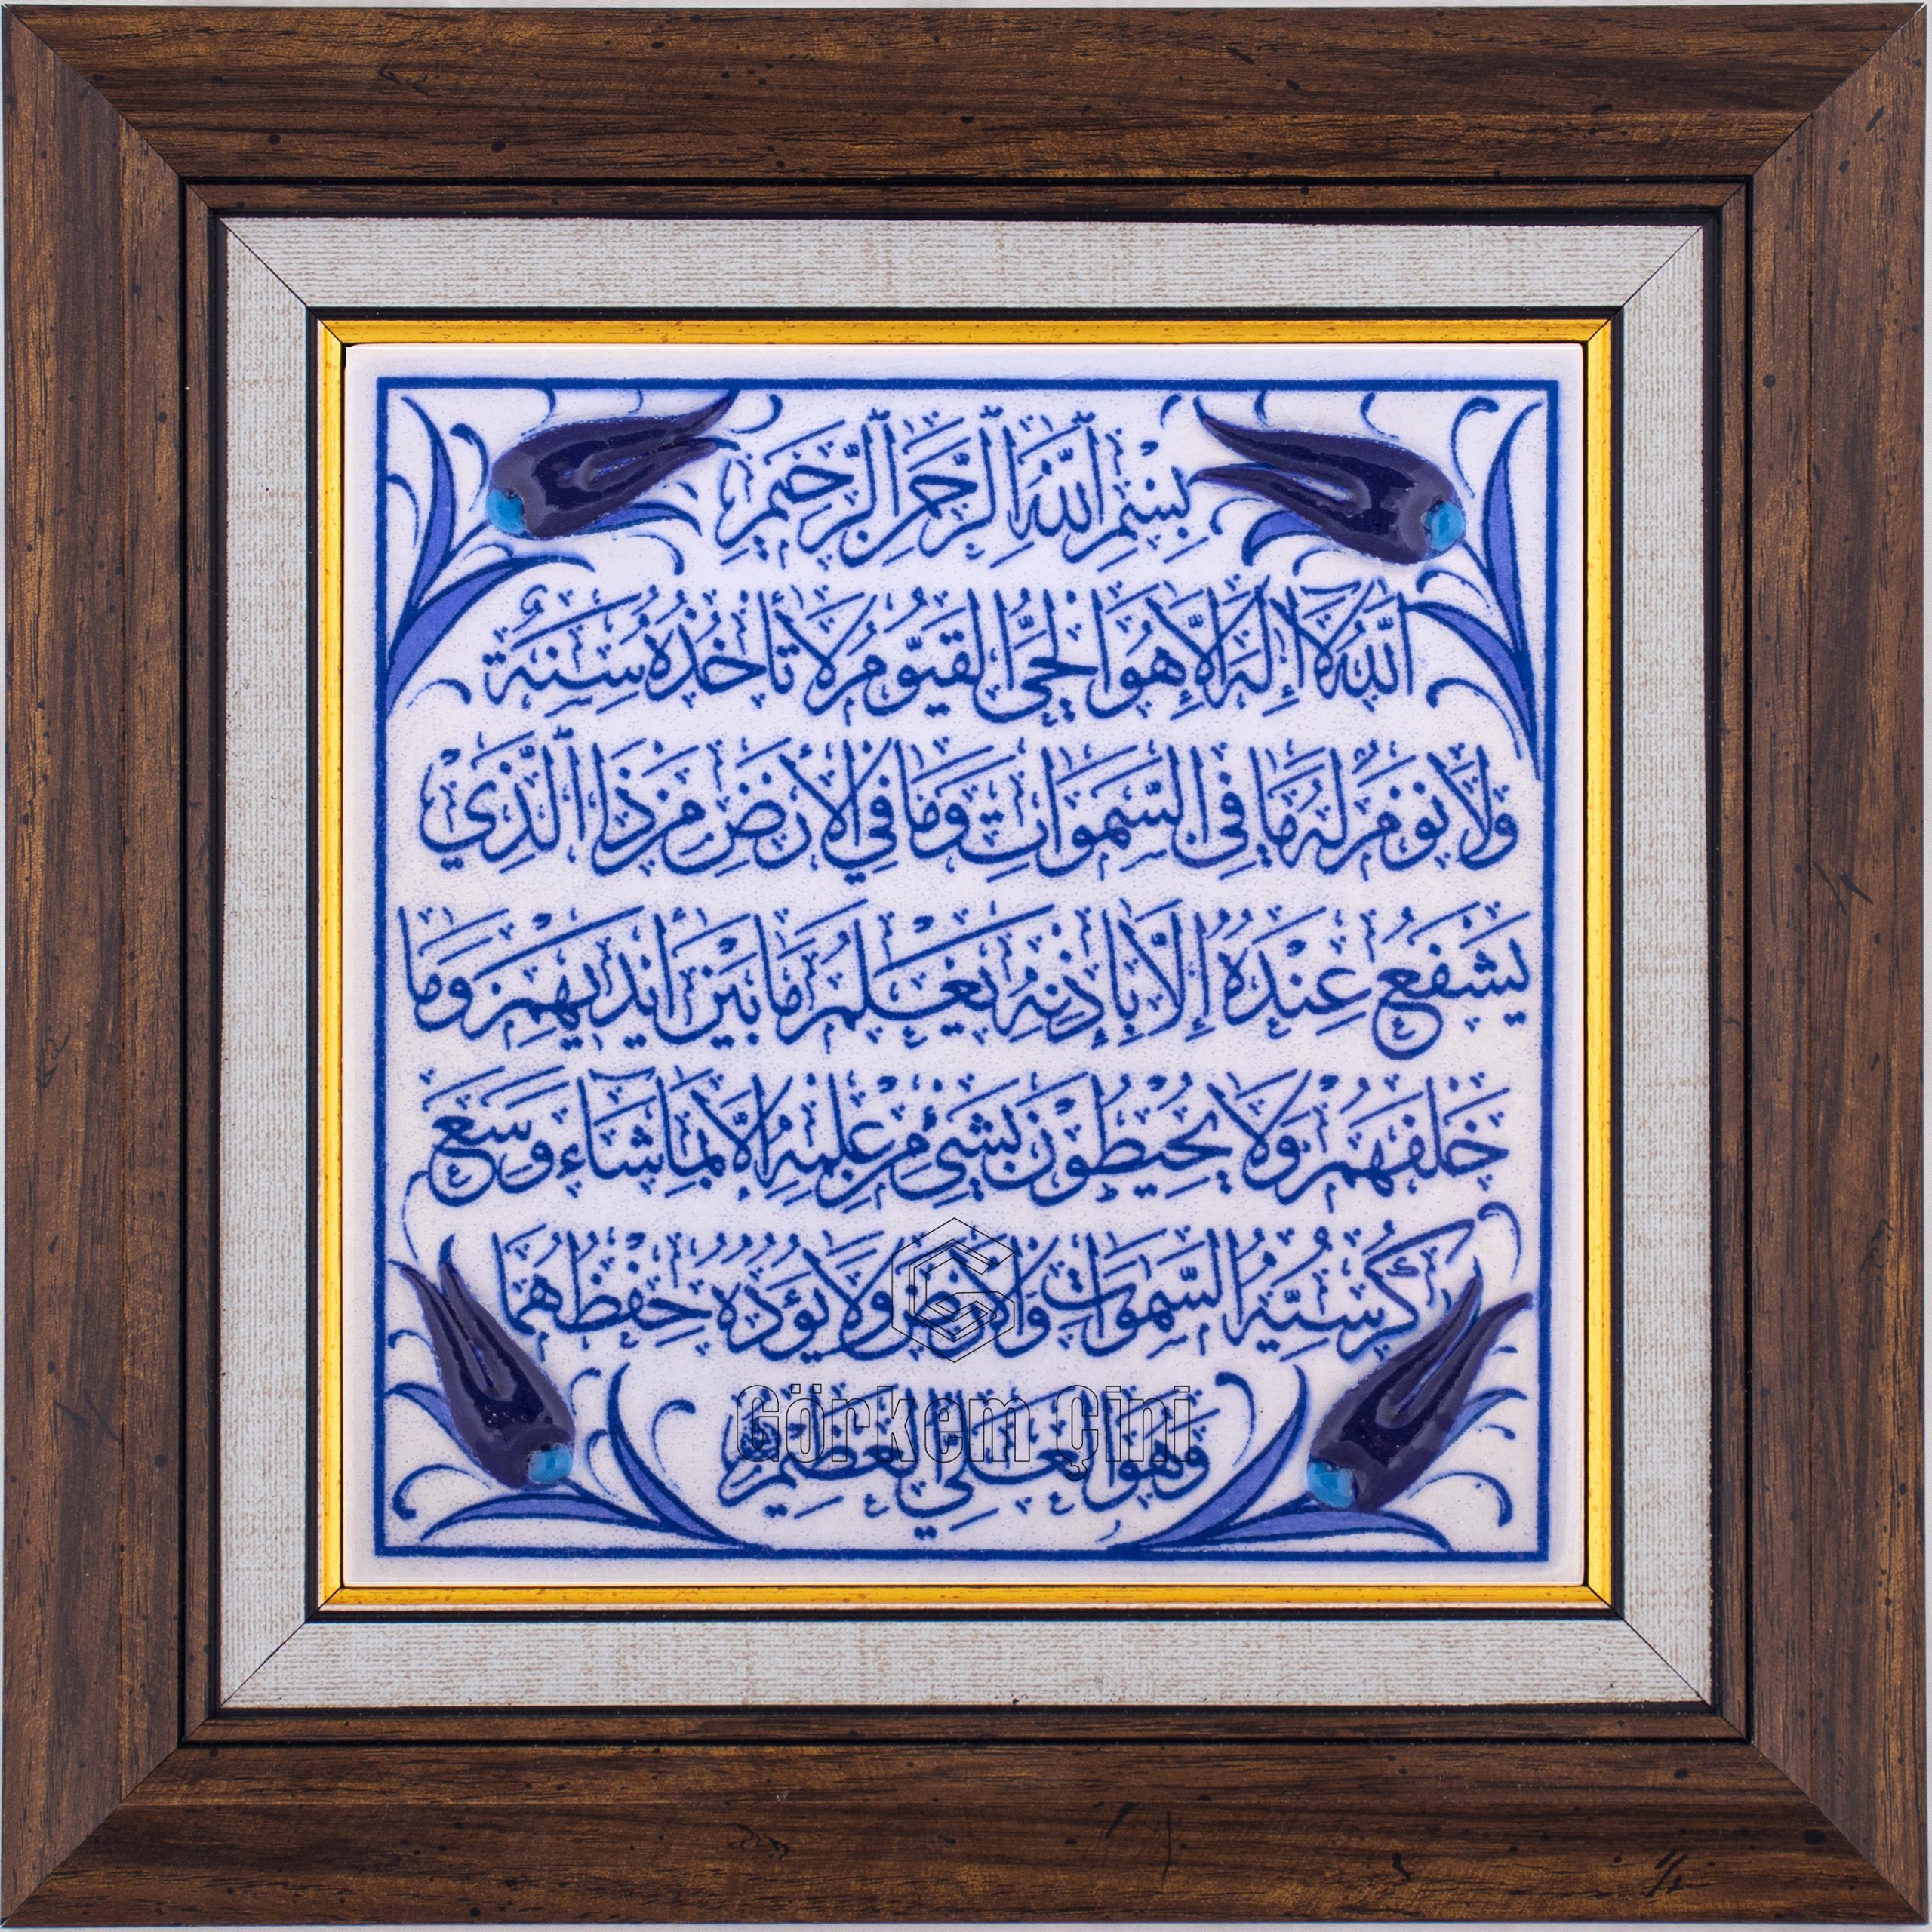 بِسْمِ اللّٰهِ الرَّحْمٰنِ الرَّحِيمِ
اَللّٰهُ لَآ إِلٰهَ إِلَّا هُوَ الْحَيُّ الْقَيُّومُ لَا تَأْخُذُهُ سِنَةٌ
وَلَا نَوْمٌ لَهُ مَا فِي السَّمٰوَاتِ وَمَا فِي الْأَرْضِ مَنْ ذَا الَّذِي
يَشْفَعُ عِنْدَهُ إِلَّا بِإِذْنِهِ يَعْلَمُ مَا بَيْنَ أَيْدِيهِمْ وَمَا
خَلْفَهُمْ وَلَا يُحِيطُونَ بِشَيْءٍ مِنْ عِلْمِهِ إِلَّا بِمَا شَاءَ وَسِعَ
كُرْسِيُّهُ السَّمٰوَاتِ وَالْأَرْضَ وَلَا يَؤُدُهُ حِفْظُهُمَا
وَهُوَ الْعَلِيُّ الْعَظِيمُ
Görkem Çini